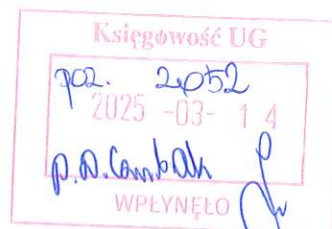 Księgowość UG
poz. 2052
2025 -03- 1 4
p. D.
WPŁYNĘŁO